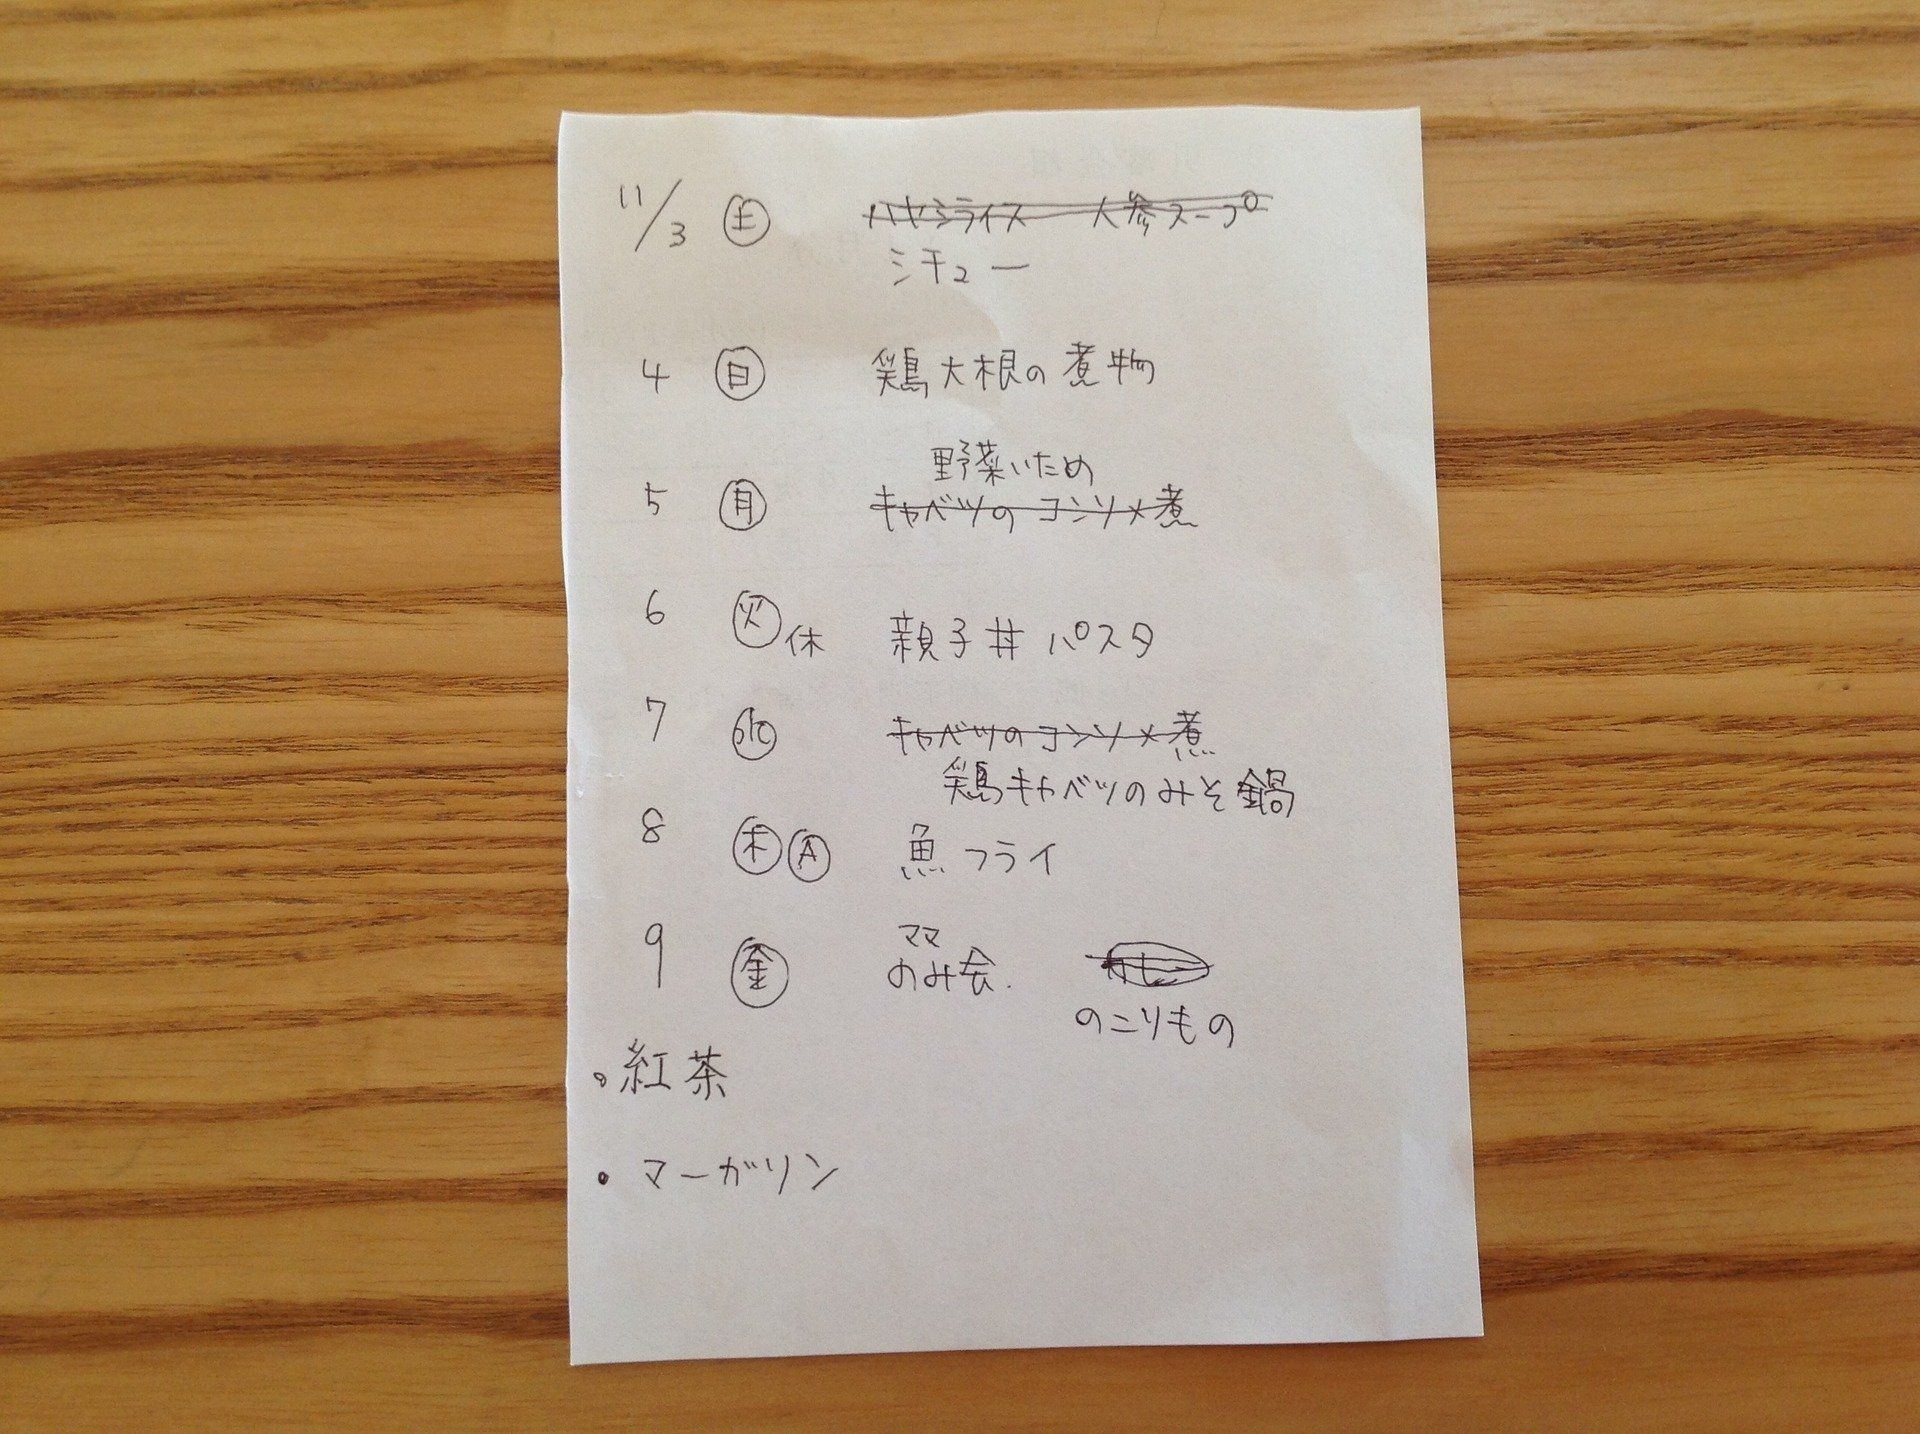 11/3 土 ハヤシライス 人参スープ
シチュー
4 日 鶏大根の煮物
野菜いため
5 月 キャベツのコンソメ煮
6 火 休 親子丼 パスタ
7 水 キャベツのコンソメ煮
鶏キャベツのみそ鍋
8 木 A 魚フライ
ママ
9 金 のみ会.
のこりもの
・紅茶
・マーガリン